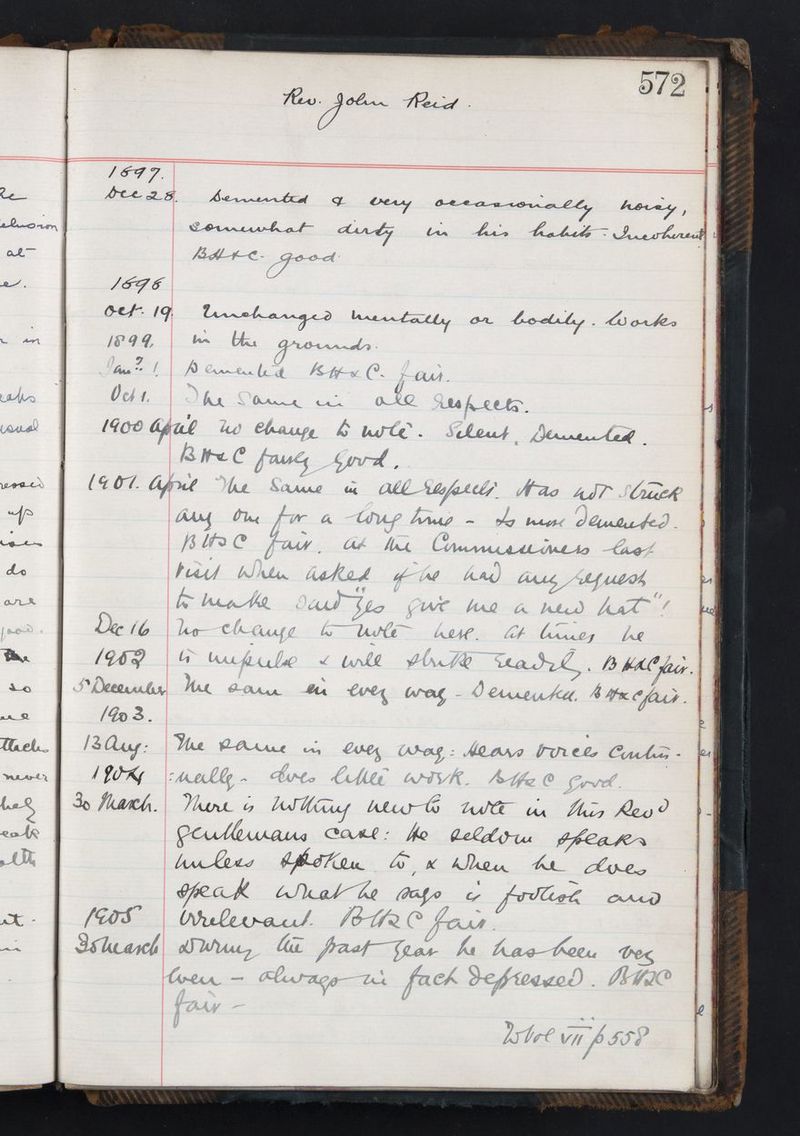 572
Rev. John Reid.
1897.
Dec 28. Demented & very occasionally noisy,
somewhat dirty in his habits - Incoherent
BH&C. good
1898
Oct. 19. Unchanged mentally or bodily. Works
1899. in the grounds.
Jany. 1. Demented BH&C. fair.
Oct 1. The same in all respects.
1900 April No change to note. Silent, Demented.
BH&C fairly good.
1901. April The same in all respects. Has not struck
any one for a long time - Is more demented.
BH&C fair. At the Commissioners last
visit when asked if he had any request
to make said "yes give me a new hat"!
Dec 16 No change to note here. At times he
1902 is & will strike readily. BH&C fair.
5 December The same in every way - Demented. BH&C fair.
1903.
13 Aug: The same in every way: Hears voices contin-
1904 :ually - does little work. BH&C good.
30 March. There is nothing new to note in this Revd
gentlemans case: He seldom speaks
unless spoken to, & when he does
speak what he says is foolish and
1905 irrelevant. BH&C fair.
30 March During the past year he has been very
- always in fact depressed. BH&C
fair -
Vol vii p 558
he
elusion
at
in
eaks
usual
ressed
up
do
are
good.
the
so
ttacks
never